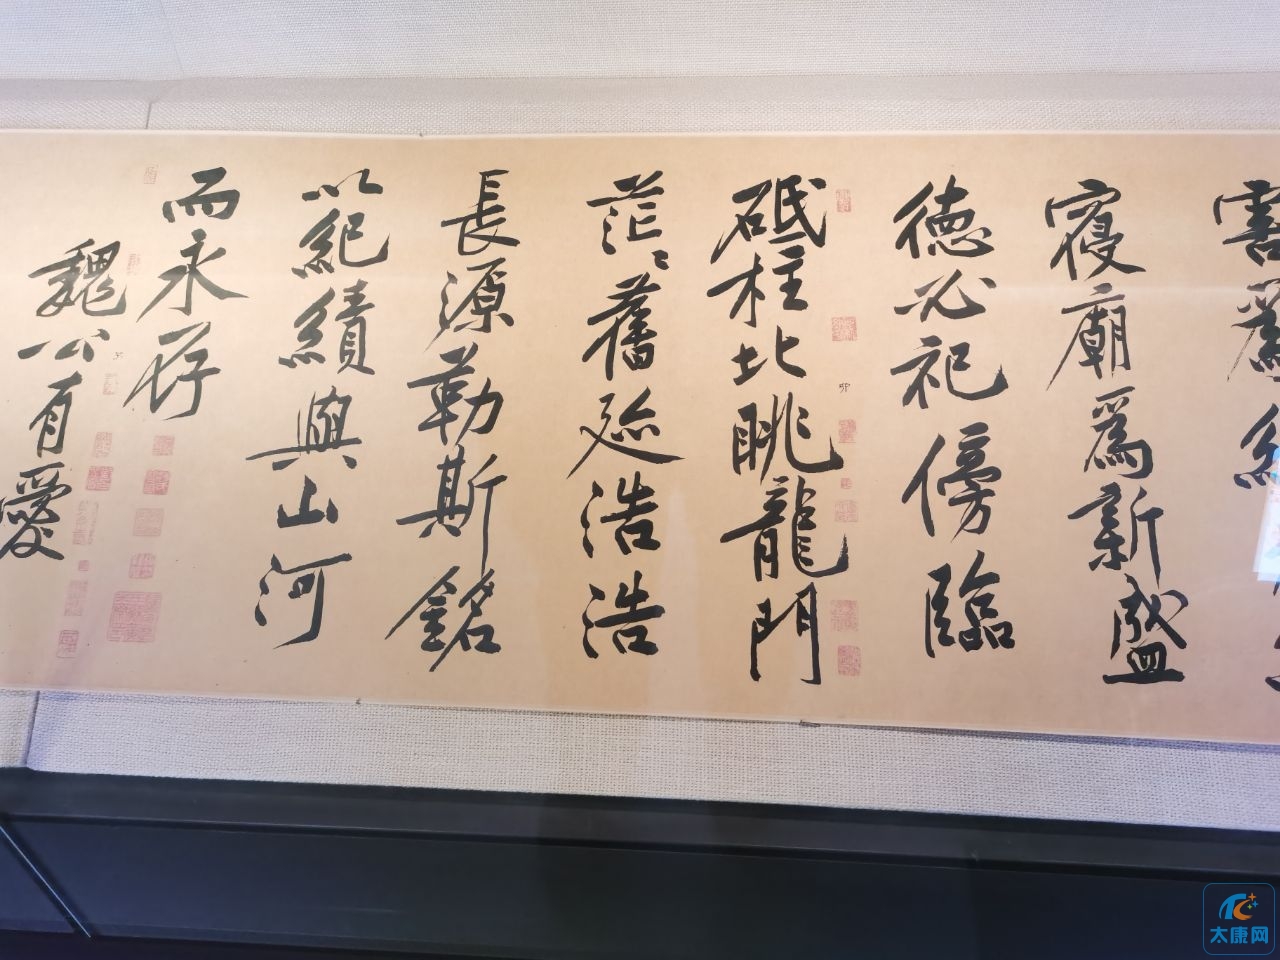 寢廟爲新盛
德必祀傍臨
砥柱北眺龍門
茫〻舊迹浩浩
長源勒斯銘
以紀績與山河
而永存
魏公有愛
太康网